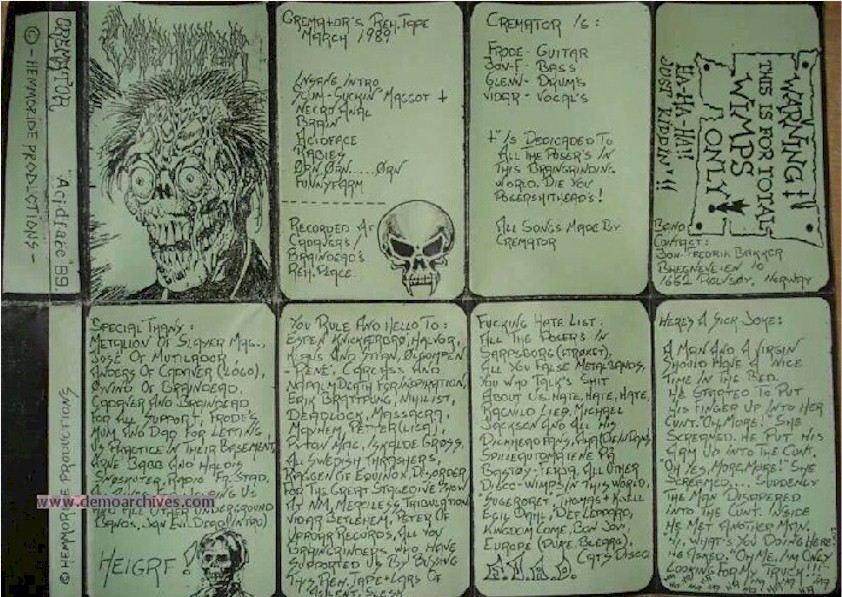 © - HEMMORIDE PRODUCTIONS -
CREMATOR "Acidface" 89.
CREMATOR'S REH. TAPE
MARCH 1989
INSANE INTRO
SCUM-SUCKIN' MAGGOT +
NECRO ANAL
BRAIN
ACIDFACE
RABIES
ØRN ØRN.....ØRN
FUNNYFARM
RECORDED AT
CADAVERS/
BRAINDEAD'S
REH. PLACE.
CREMATOR IS:
FRODE - GUITAR
JON-F - BASS
GLENN - DRUM'S
VIDAR - VOCAL'S
"+" IS DEDICADED TO
ALL THE POSER'S IN
THIS BRAINGRINDING-
WORLD. DIE YOU
POSERSHITHEAD'S!
ALL SONGS MADE BY
CREMATOR
WARNING!
THIS IS FOR TOTAL
WIMPS
ONLY
HA-HA-HA!!
JUST KIDDIN'!!
CONTACT:
JON-FREDRIK BAKKER
1652 NORWAY
SPECIAL THANX:
METALION OF SLAYER MAG.,
JOSE OF MUTILADOR,
ANDERS OF CADAVER (LOGO),
ØIVIND OF BRAINDEAD,
CADAVER AND BRAINDEAD
FOR ALL SUPPORT, FRODE'S
MUM AND DAD FOR LETTING
US PRACTICE IN THEIR BASEMENT,
ARNE BABB AND HALDIS
RADIO FR. STAD,
US
AND ALL OTHER UNDERGROUND
BANDS, EVIL DEAD (INTRO)
HEIGRF!
© HEMMORIDE PRODUCTIONS
www.demoarchives.com
YOU RULE AND HELLO TO:
ESPEN KNICKERBRO, HALVOR,
KLAUS AND STIAN, OLGOMPEN
- RENE, CARCASS AND
NAPALM DEATH FOR INSPIRATION,
ERIK BRATTRUNG, NIHILIST,
DEADLOCK, MASSACRA,
MAYHEM, PETER (LICA),
ISKALDE GROSS,
ALL SWEDISH THRASHERS,
OF EQUINOX, DISORDER
FOR THE GREAT STAGEDIVE SHOW
AT NM, MERCILESS, TRIBULATION
VIDAR BETLEHEM, PETER OF
UPROAR RECORDS, ALL YOU
BRAINGRINDERS WHO HAVE
SUPPORTED US BY BUYING
THIS REH. TAPE + LARS OF
FUCKING HATE LIST:
ALL THE POSERS IN
SARPSBORG (STRØKET),
ALL YOU FALSE METALBANDS,
YOU WHO TALK'S SHIT
ABOUT US. HATE, HATE, HATE,
RAGNILD LIER, MICHAEL
JACKSON AND ALL HIS
DICKHEAD FANS,
SPILLEAUTOMATENE PÅ
BASTØY-FERJA, ALL OTHER
DISCO-WIMPS IN THIS WORLD,
THOMAS + KJELL
EGIL DAHL, DEF LEPPARD,
KINGDOM COME, BON JOVI,
EUROPE
CATS DISCO
HERE'S A SICK JOKE:
A MAN AND A VIRGIN
SHOULD HAVE A NICE
TIME IN THE BED.
HE STARTED TO PUT
HIS FINGER UP INTO HER
CUNT. "OH, MORE!" SHE
SCREAMED. HE PUT HIS
ARM UP INTO THE CUNT.
"OH YES, MORE, MORE!" SHE
SCREAMED.... SUDDENLY
THE MAN DISAPPERED
INTO THE CUNT. INSIDE
HE MET ANOTHER MAN.
WHAT'S YOU DOING HERE"
HE ASKED. "OH ME, I'M ONLY
LOOKING FOR MY TRUCK!!!"
HA HA HA HA HA HA